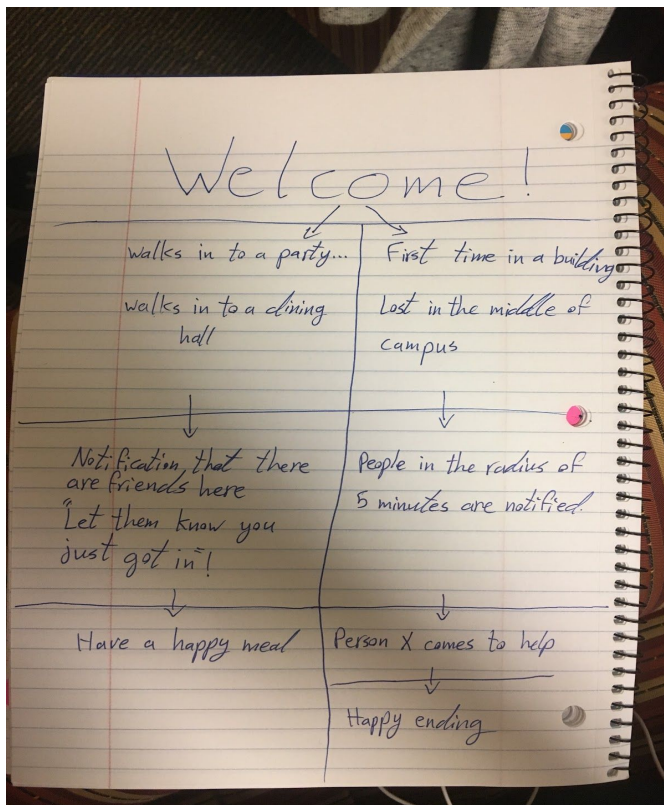 Welcome!
walks in to a party...
walks in to a dining
hall
Notification, that there
are friends here
"Let them know you
just got in"!
Have a happy meal
First time in a building
Lost in the middle of
campus
People in the radius of
5 minutes are notified.
Person X comes to help
Happy ending